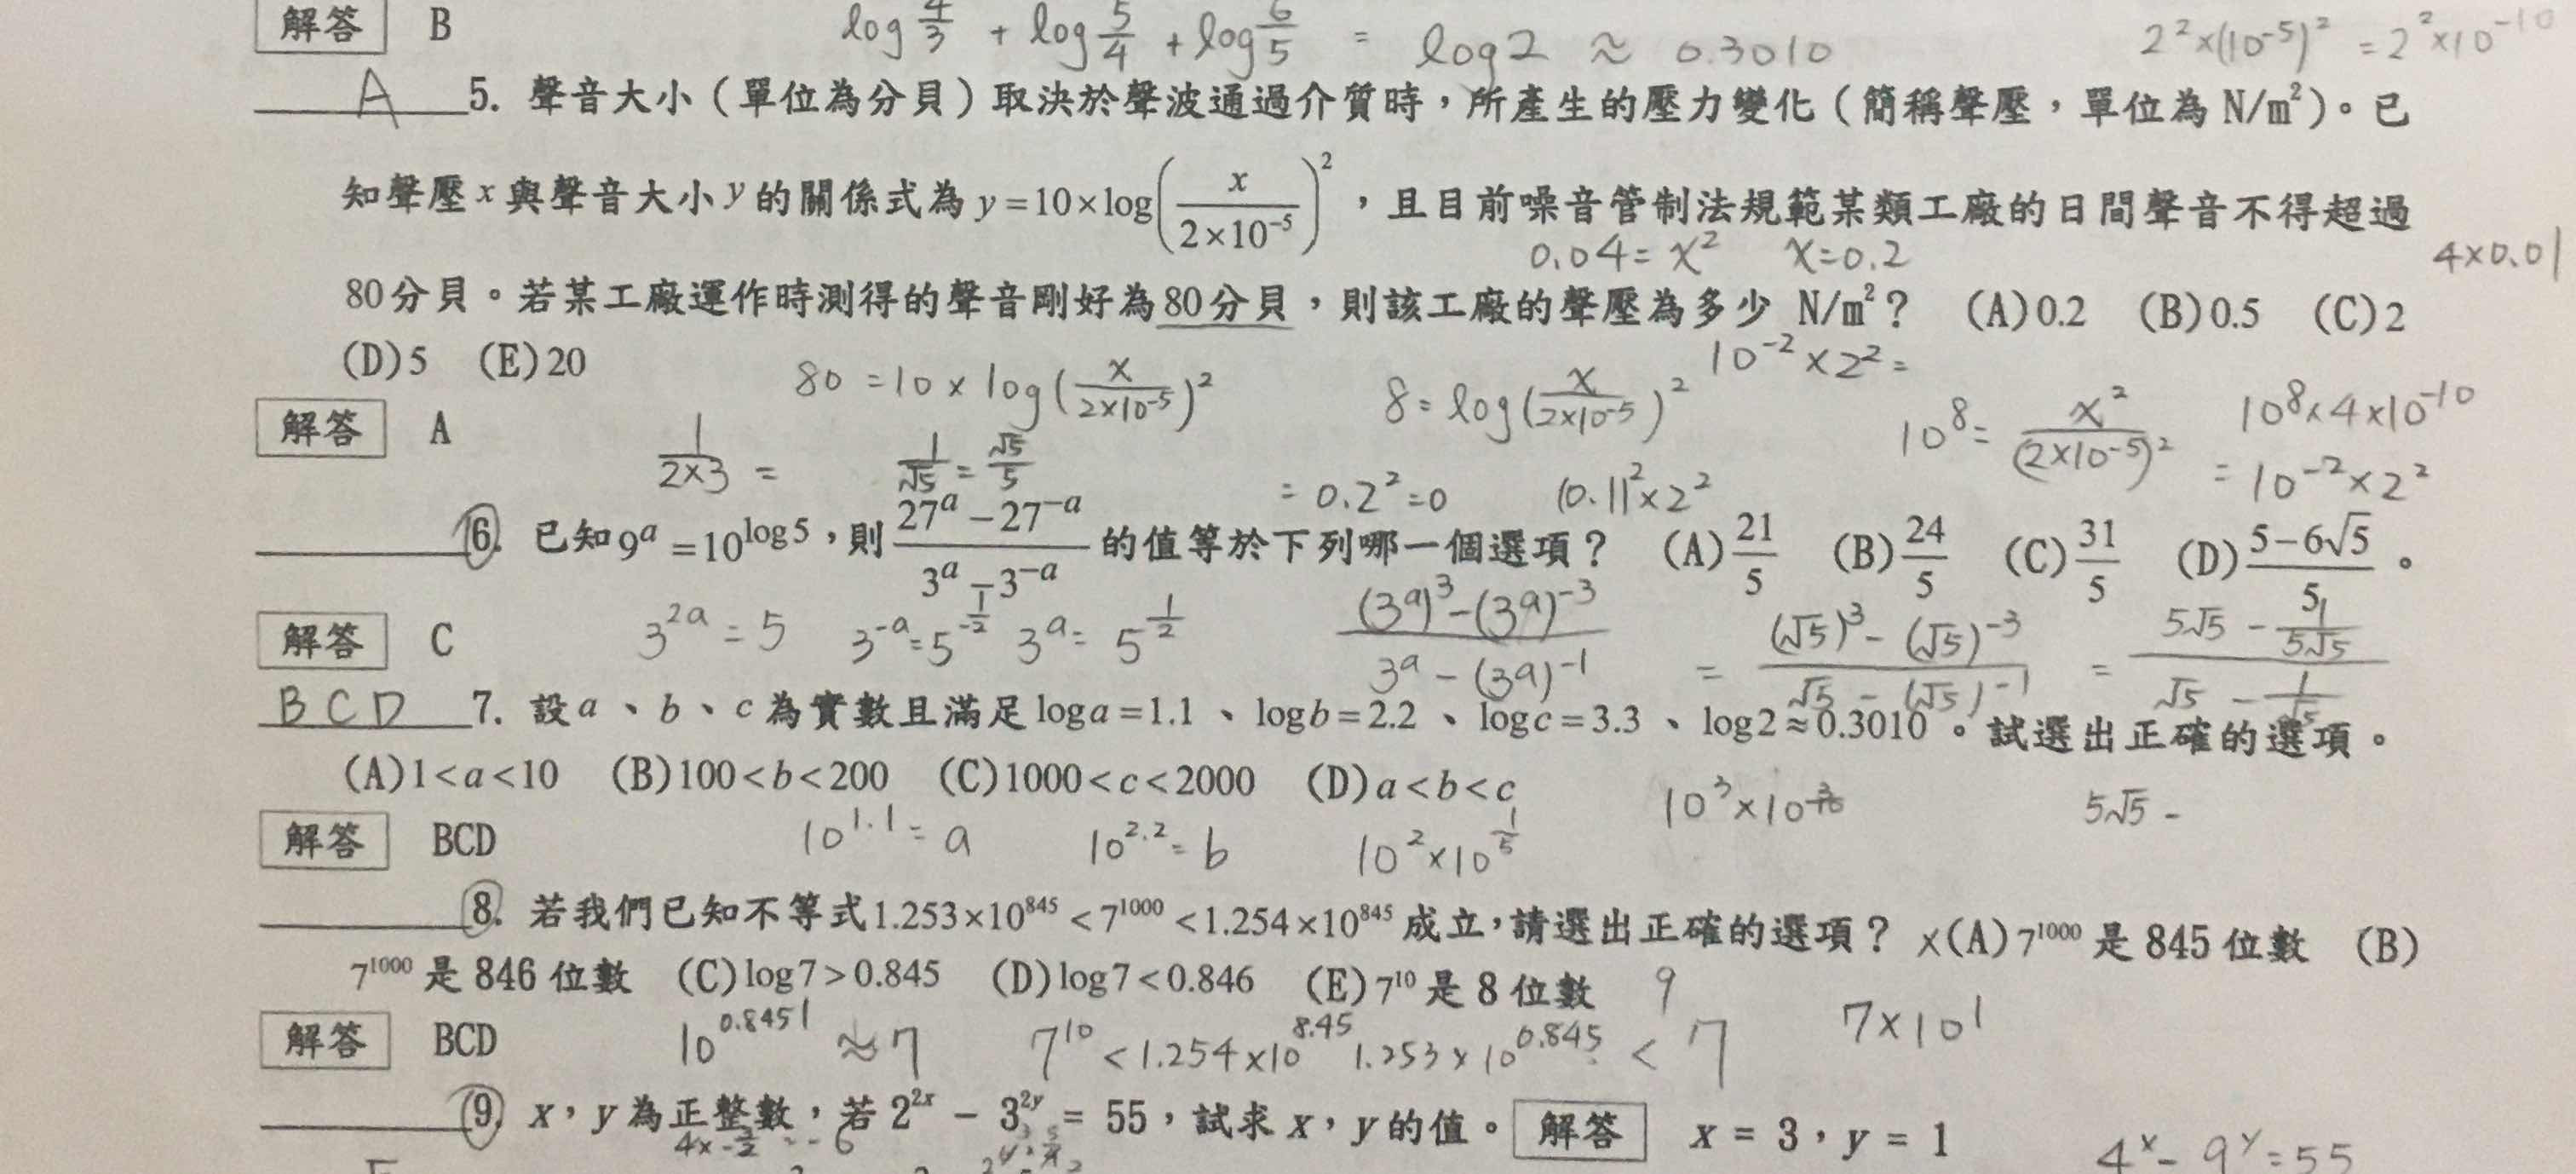 解答 B log 4/3 + log 5/4 + log 6/5 = log2 ≈ 0.3010 2²×(10⁻⁵)² = 2²×10⁻¹⁰
A 5. 聲音大小（單位為分貝）取決於聲波通過介質時，所產生的壓力變化（簡稱聲壓，單位為 N/m²）。已
知聲壓 x 與聲音大小 y 的關係式為 y=10×log(x/(2×10⁻⁵))²，且目前噪音管制法規範某類工廠的日間聲音不得超過
0.04=x² x=0.2 4×0.01
80分貝。若某工廠運作時測得的聲音剛好為80分貝，則該工廠的聲壓為多少 N/m²？ (A)0.2 (B)0.5 (C)2
(D)5 (E)20 10⁻²×2²=
80=10×log(x/(2×10⁻⁵))² 8=log(x/(2×10⁻⁵))² 10⁸=x²/(2×10⁻⁵)² 10⁸×4×10⁻¹⁰
解答 A
1/(2×3)= 1/√5=√5/5 =0.2²=0 (0.1)²×2² =10⁻²×2²
6. 已知9ᵃ=10^(log5)，則(27ᵃ−27⁻ᵃ)/(3ᵃ−3⁻ᵃ)的值等於下列哪一個選項？ (A)21/5 (B)24/5 (C)31/5 (D)(5−6√5)/5。
解答 C 3²ᵃ=5 3⁻ᵃ=5^(-1/2) 3ᵃ=5^(1/2) ((3ᵃ)³−(3ᵃ)⁻³)/(3ᵃ−(3ᵃ)⁻¹) = ((√5)³−(√5)⁻³)/(√5−(√5)⁻¹) = (5√5−1/(5√5))/(√5−1/√5)
BCD 7. 設a、b、c為實數且滿足loga=1.1、logb=2.2、logc=3.3、log2≈0.3010。試選出正確的選項。
(A)1<a<10 (B)100<b<200 (C)1000<c<2000 (D)a<b<c
10³×10^(3/10) 5√5−
解答 BCD 10^1.1=a 10^2.2=b 10²×10^(1/5)
8. 若我們已知不等式1.253×10⁸⁴⁵<7¹⁰⁰⁰<1.254×10⁸⁴⁵成立，請選出正確的選項？ ×(A)7¹⁰⁰⁰是 845 位數 (B)
7¹⁰⁰⁰是 846 位數 (C)log7>0.845 (D)log7<0.846 (E)7¹⁰是 8 位數 9
解答 BCD 10^0.8451≈7 7¹⁰<1.254×10^8.45 1.253×10^0.845<7 7×10¹
9. x，y為正整數，若2²ˣ − 3²ʸ = 55，試求x，y的值。 解答 x = 3，y = 1
4ˣ−9ʸ=55